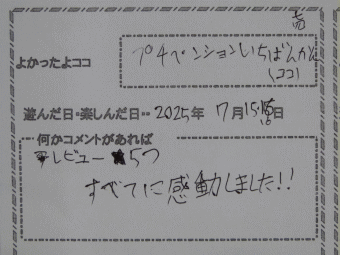 壱
よかったよココ
プチペンションいちばんかん
(ココ)
遊んだ日・楽しんだ日・・ 2025年 7月 15 日
何かコメントがあれば
レビュー ★5つ
すべてに感動しました!!